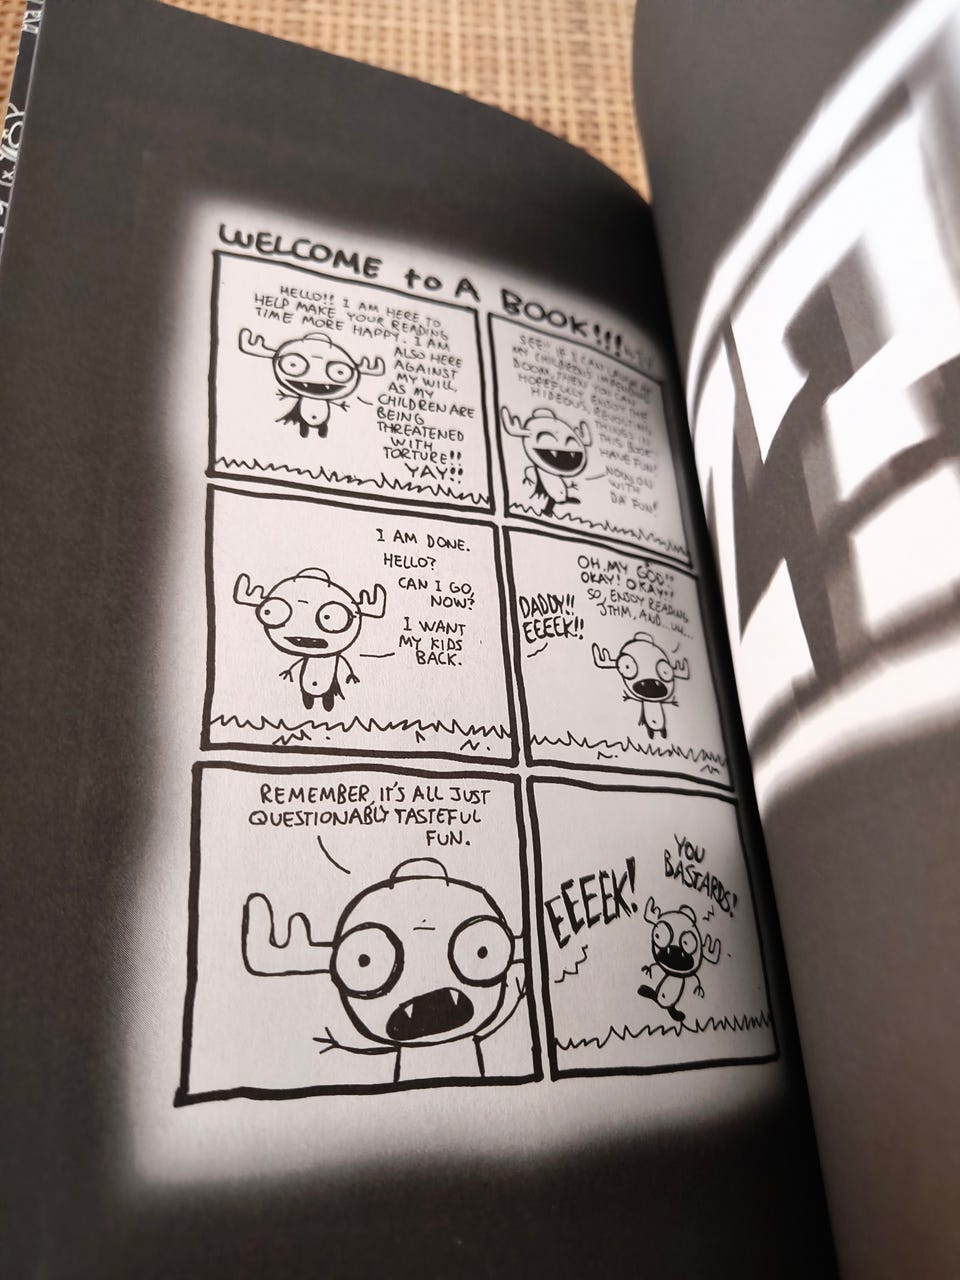 WELCOME to A BOOK!!!
HELLO!! I AM HERE TO
HELP MAKE YOUR READING
TIME MORE HAPPY. I AM
ALSO HERE
AGAINST
MY WILL,
AS MY
CHILDREN ARE
BEING
THREATENED
WITH
TORTURE!!
YAY!!
SEE!! IF I CAN LAUGH AT
MY CHILDREN'S IMPENDING
DOOM, THEN YOU CAN
HOPEFULLY ENJOY THE
HIDEOUS, REVOLTING
THINGS IN
THIS BOOK.
HAVE FUN!
NOW ON
WITH
DA' FUN!
I AM DONE.
HELLO?
CAN I GO,
NOW?
I WANT
MY KIDS
BACK.
DADDY!!
EEEEK!!
OH, MY GOD!!
OKAY! OKAY!!
SO, ENJOY READING
JTHM, AND...UH...
REMEMBER, IT'S ALL JUST
QUESTIONABLY TASTEFUL
FUN.
EEEEK!
YOU
BASTARDS!